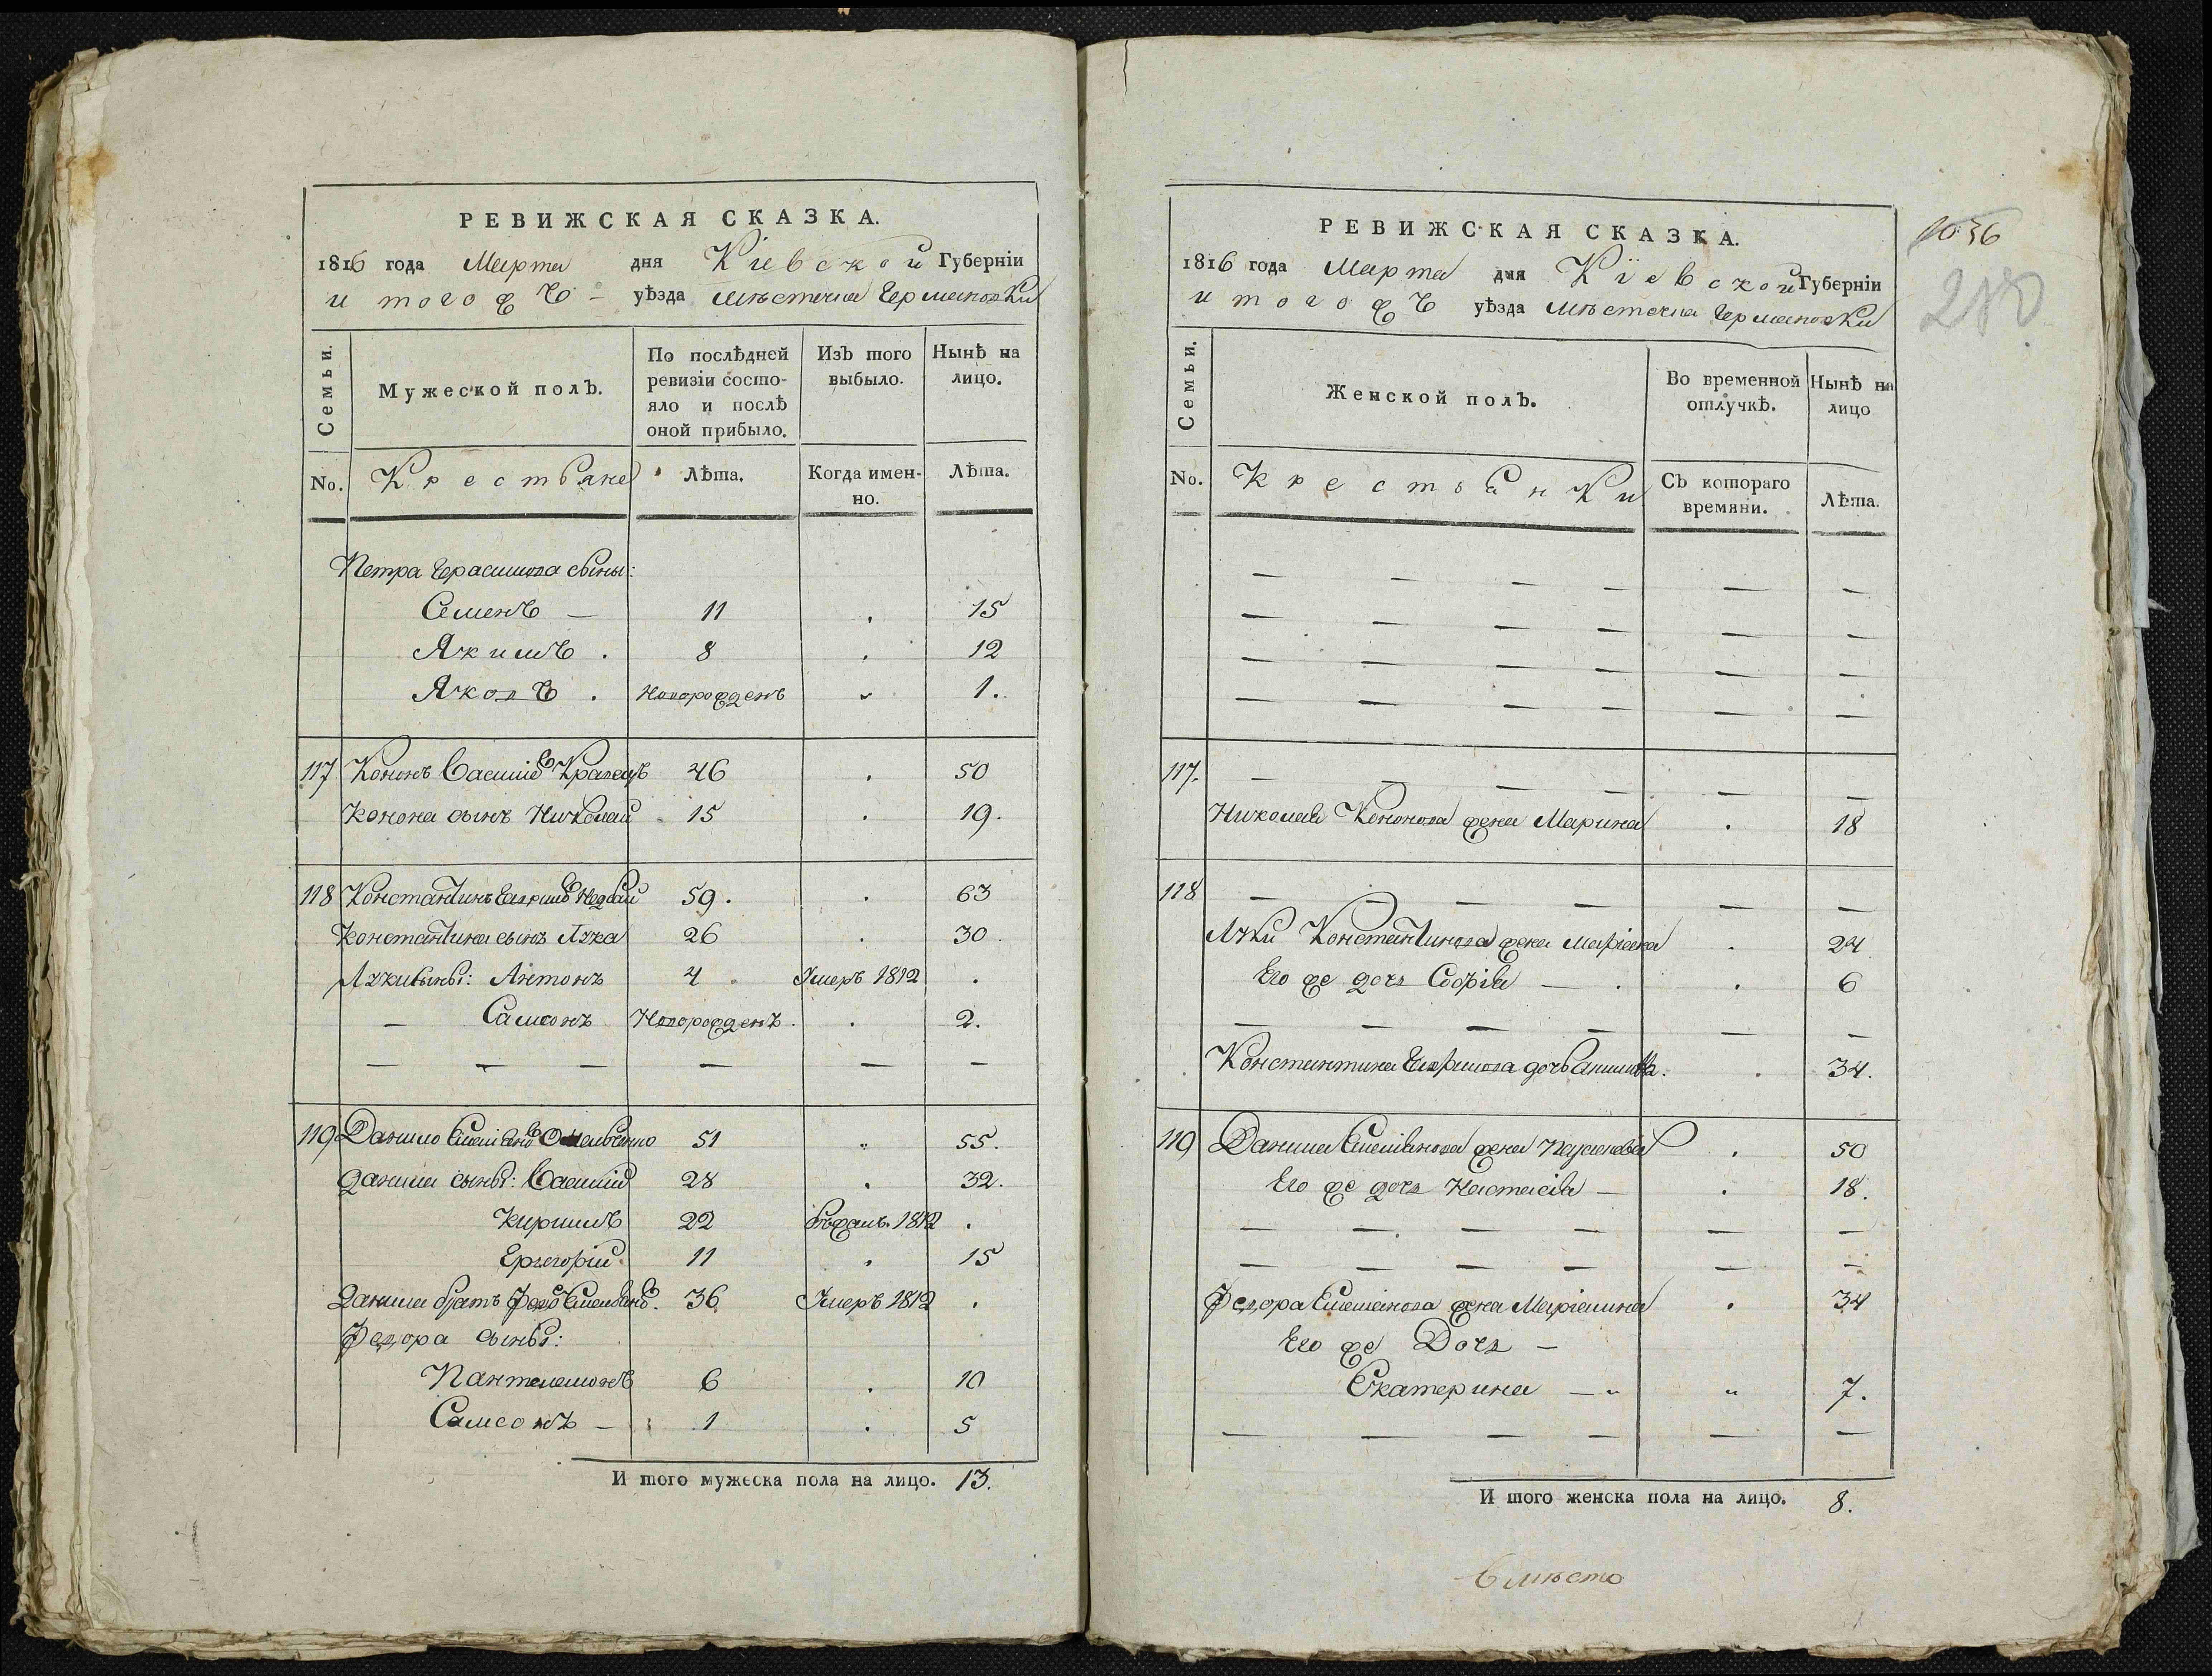 РЕВИЖСКАЯ СКАЗКА.
1816 года Марта дня Кіевской Губерніи
и того жъ – уѣзда мѣстечка Германовки
Семьи.
Мужеской полЪ.
По послѣдней ревизіи состояло и послѣ оной прибыло.
ИзЪ того выбыло.
НынѢ на лицо.
No. Крестьяне Лѣта. Когда именно. Лѣта.
Петра Герасимова сыны:
Семенъ – 11 . 15
Якимъ . 8 . 12
Яковъ . Новорожденъ „ 1.
117 Кононъ Василіевъ Кравецъ 46 . 50
Конона сынъ Николай 15 . 19.
118 Константинъ Гавриловъ Недбай 59. . 63
Константина сынъ Лука 26 . 30.
Луки сыны: Антонъ 4 Умеръ 1812 .
– Самсонъ Новорожденъ . 2.
– – – – – –
119 Данило Емеліановъ Омельченко 51 „ 55.
Данила сыны: Василій 28 . 32.
Кирилъ 22 бѣжалъ 1812 .
Григорій 11 . 15
Данила братъ Федоръ Емельяновъ. 36 Умеръ 1812 .
Федора сыны:
Пантелемонъ 6 . 10
Самсонъ – 1 . 5
И того мужеска пола на лицо. 13.
1036
280
РЕВИЖСКАЯ СКАЗКА.
1816 года Марта дня Кіевской Губерніи
и того жъ уѣзда мѣстечка Германовки
Семьи.
Женской полЪ.
Во временной отлучкѣ.
НынѢ на лицо
No. Крестьянки СЪ котораго времяни. Лѣта.
– – – – – –
– – – – – –
– – – – – –
– – – – – –
117. – – – – –
Николая Кононова жена Марина . 18
118 – – – – – –
Луки Константинова жена . 24
Его же дочь Софія – . . 6
– – – – – –
Константина Гаврилова дочь . 34.
119 Данила Емеліанова жена . 50
Его же дочь Настасія – . 18.
– – – – – –
– – – – – –
Федора Емеліанова жена Маріанна . 34
Его же Дочь –
Екатерина – „ „ 7.
– – – – – –
И того женска пола на лицо. 8.
вмѣсто